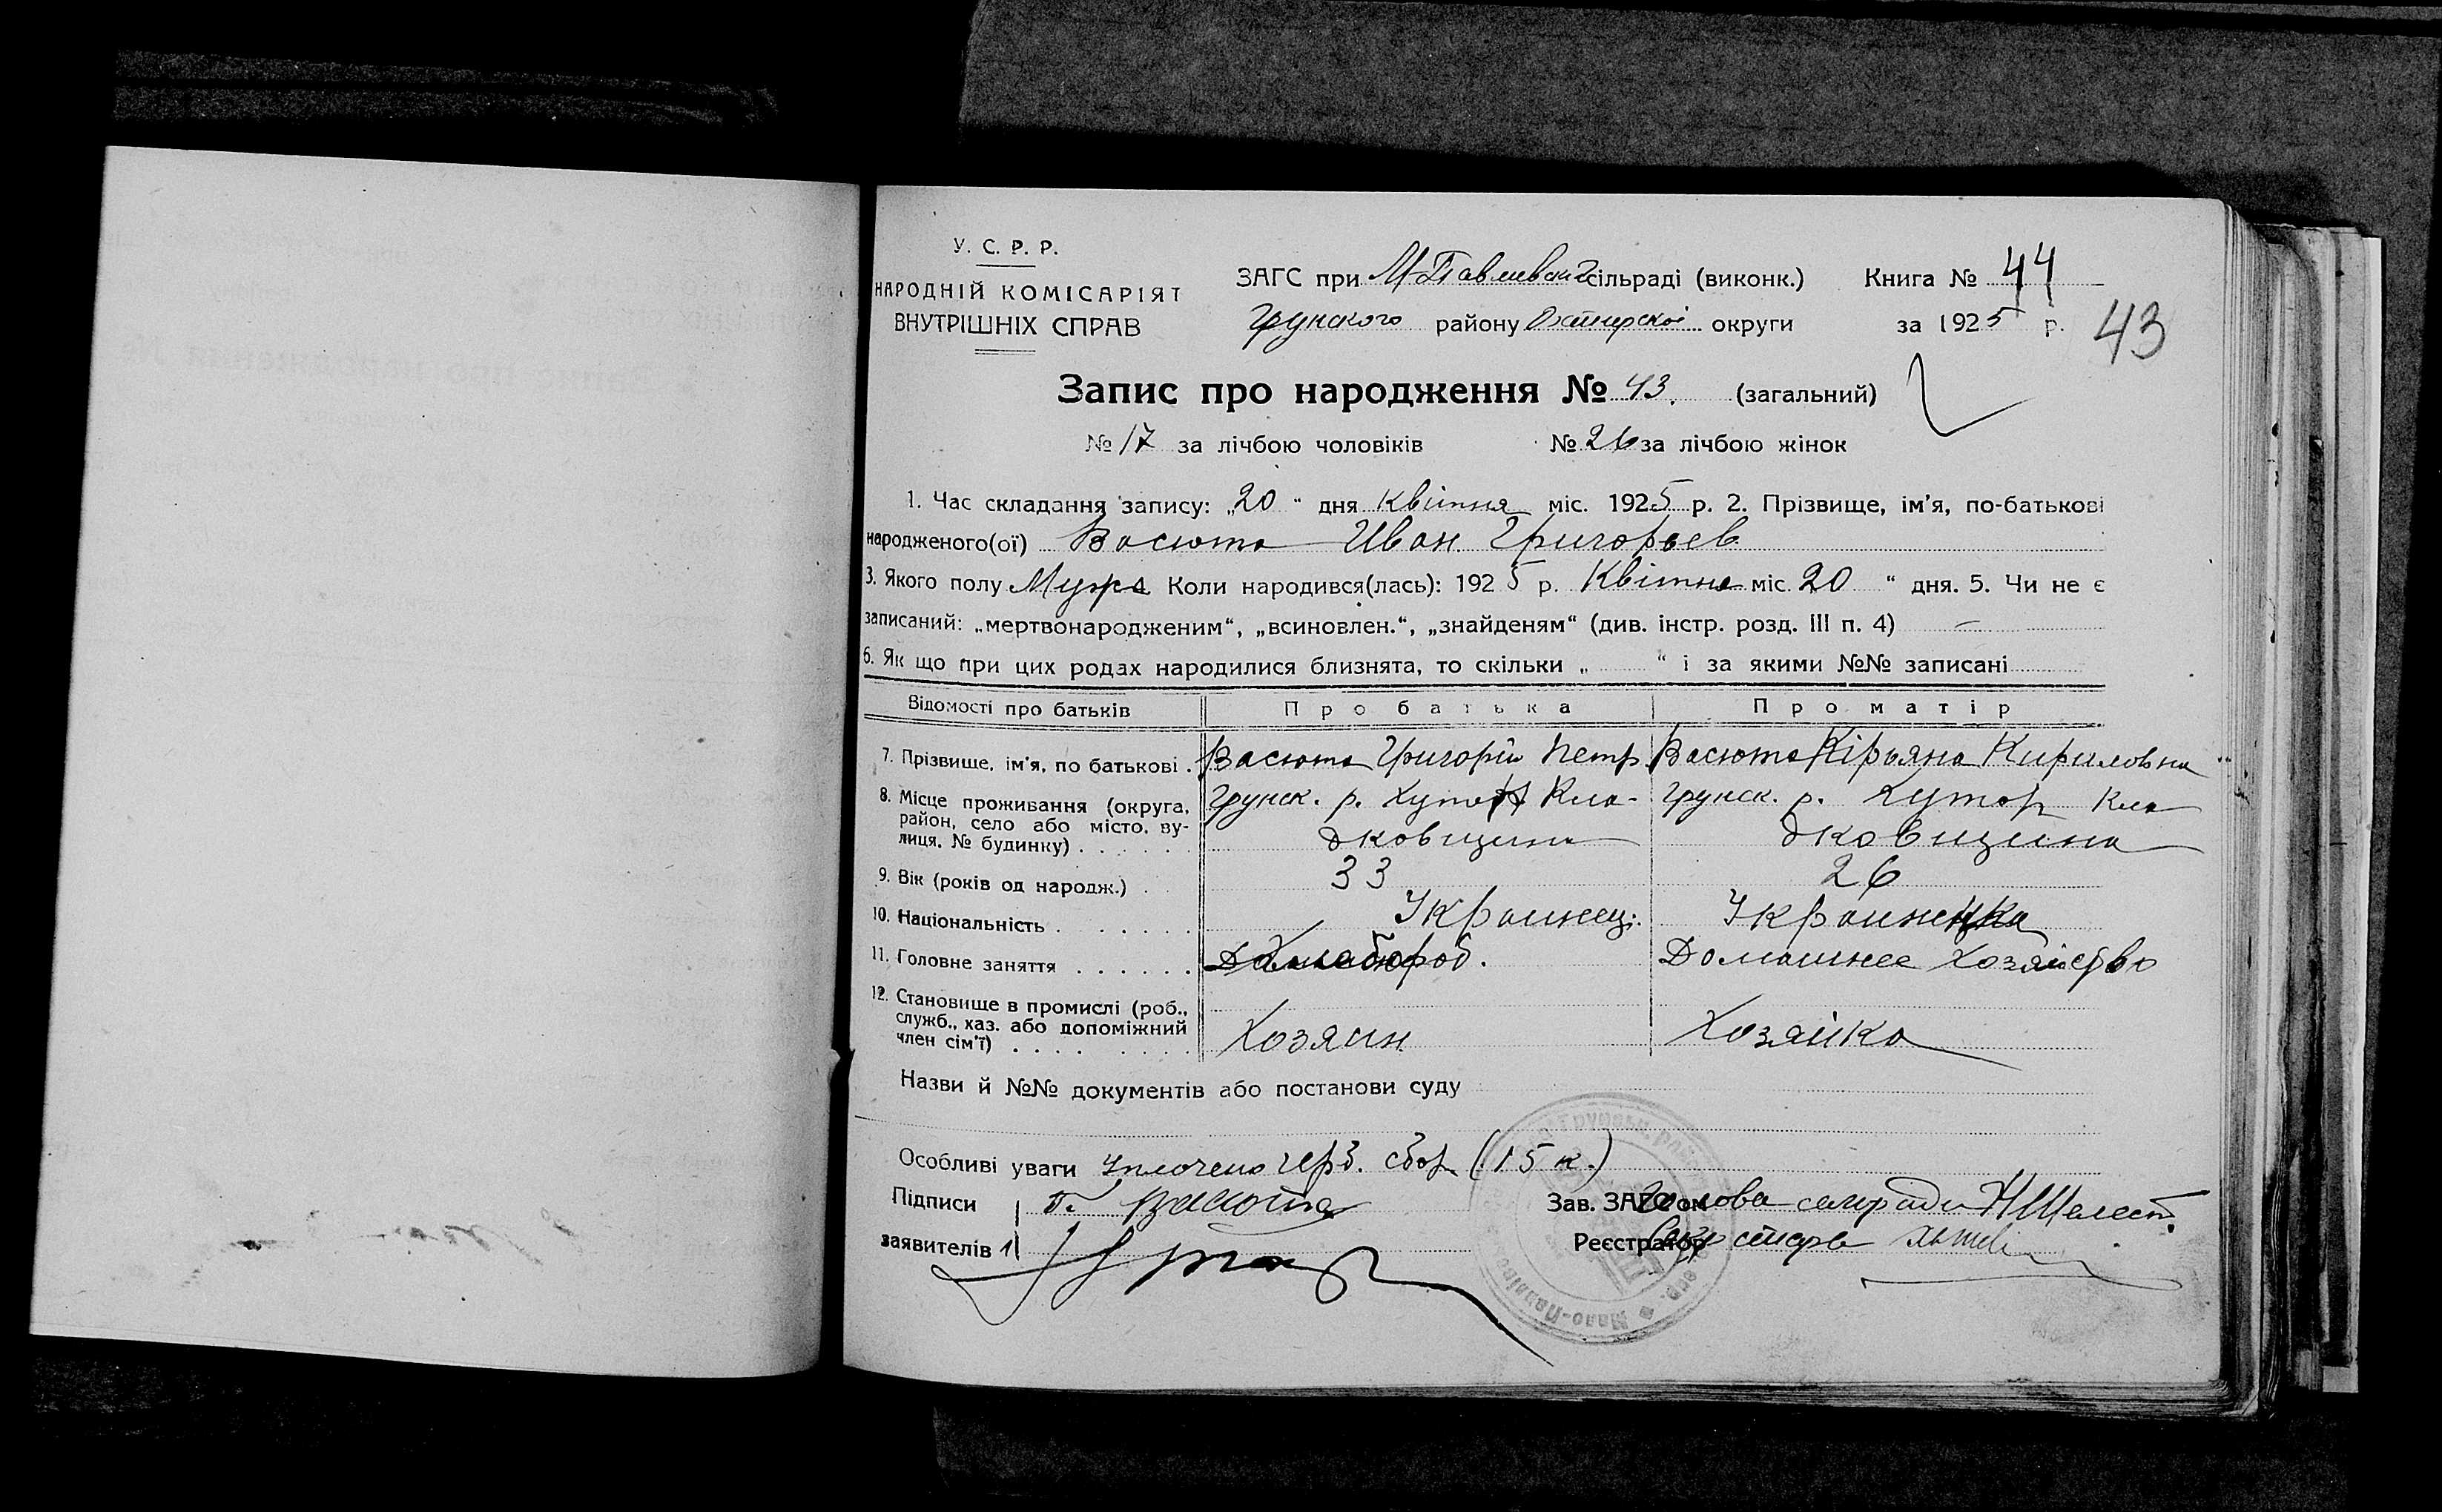 У. С. Р. Р.
НАРОДНІЙ КОМІСАРІЯТ
ВНУТРІШНІХ СПРАВ
ЗАГС при М-Павлівськ. сільраді (виконк.) Книга № 44
Грунского району Охтирскої округи за 1925 р.
43
Запис про народження № 43. (загальний)
№ 17 за лічбою чоловіків № 26 за лічбою жінок
1. Час складання запису: „20“ дня Квітня міс. 1925 р. 2. Прізвище, ім'я, по-батькові
народженого(ої) Васюта Иван Григорьев
3. Якого полу Муж. 4. Коли народився(лась): 1925 р. Квітня міс. 20 “ дня. 5. Чи не є
записаний: „мертвонародженим“, „всиновлен.“, „знайденям“ (див. інстр. розд. III п. 4) —
6. Як що при цих родах народилися близнята, то скільки „ “ і за якими №№ записані
Відомості про батьків Про батька Про матір
7. Прізвище, ім'я, по батькові . Васюта Григорій Петр. Васюта Кириловна
8. Місце проживання (округа, район, село або місто, вулиця, № будинку) . . . . . . Грунск. р. Хутор Кла-
дковщина Грунск. р. Хутор Кла
дковщина
9. Вік (років од народж.) . 33 26
10. Національність . . . . . . . Украинец. Украинка
11. Головне заняття . . . . . . Хлебороб. Домашнее хозяйство
12. Становище в промислі (роб., служб., хаз. або допоміжний член сім'ї) . . . . Хозяин Хозяйка
Назви й №№ документів або постанови суду
Особливі уваги Уплочено герб. сбор (15 к.)
Підписи Васюта Зав. ЗАГС'ом Голова сельради Н Шелест.
заявителів Реєстратор Секретарь